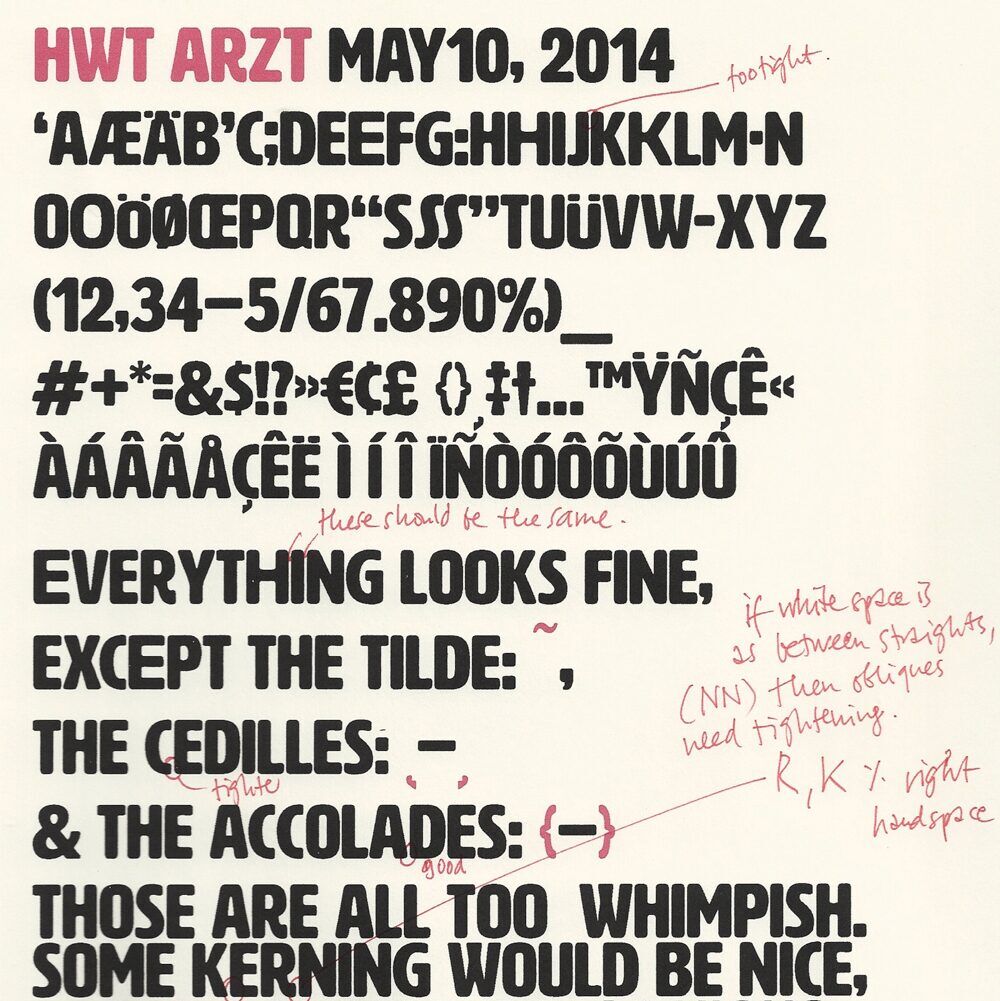 HWT ARZT MAY10, 2014
too tight.
‘AÆÄB’C;DEEFG:HHIJKKLM·N
OOöØŒPQR“SSS”TUÜVW-XYZ
(12,34—5/67.890%)_
#+*=&$!!?»€¢£ {}¸‡†...™ŸÑÇÊ«
ÀÁÂÃÅÇÊË Ì Í Î ÏÑÒÓÔÕÙÚÛ
these should be the same.
EVERYTHING LOOKS FINE,
if white space is
as between straights,
(NN) then obliques
need tightening.
EXCEPT THE TILDE: ~ ,
THE CEDILLES: ¸ – ¸
tighte
R, K % right
handspace
& THE ACCOLADES: {–}
good
THOSE ARE ALL TOO WHIMPISH.
SOME KERNING WOULD BE NICE,